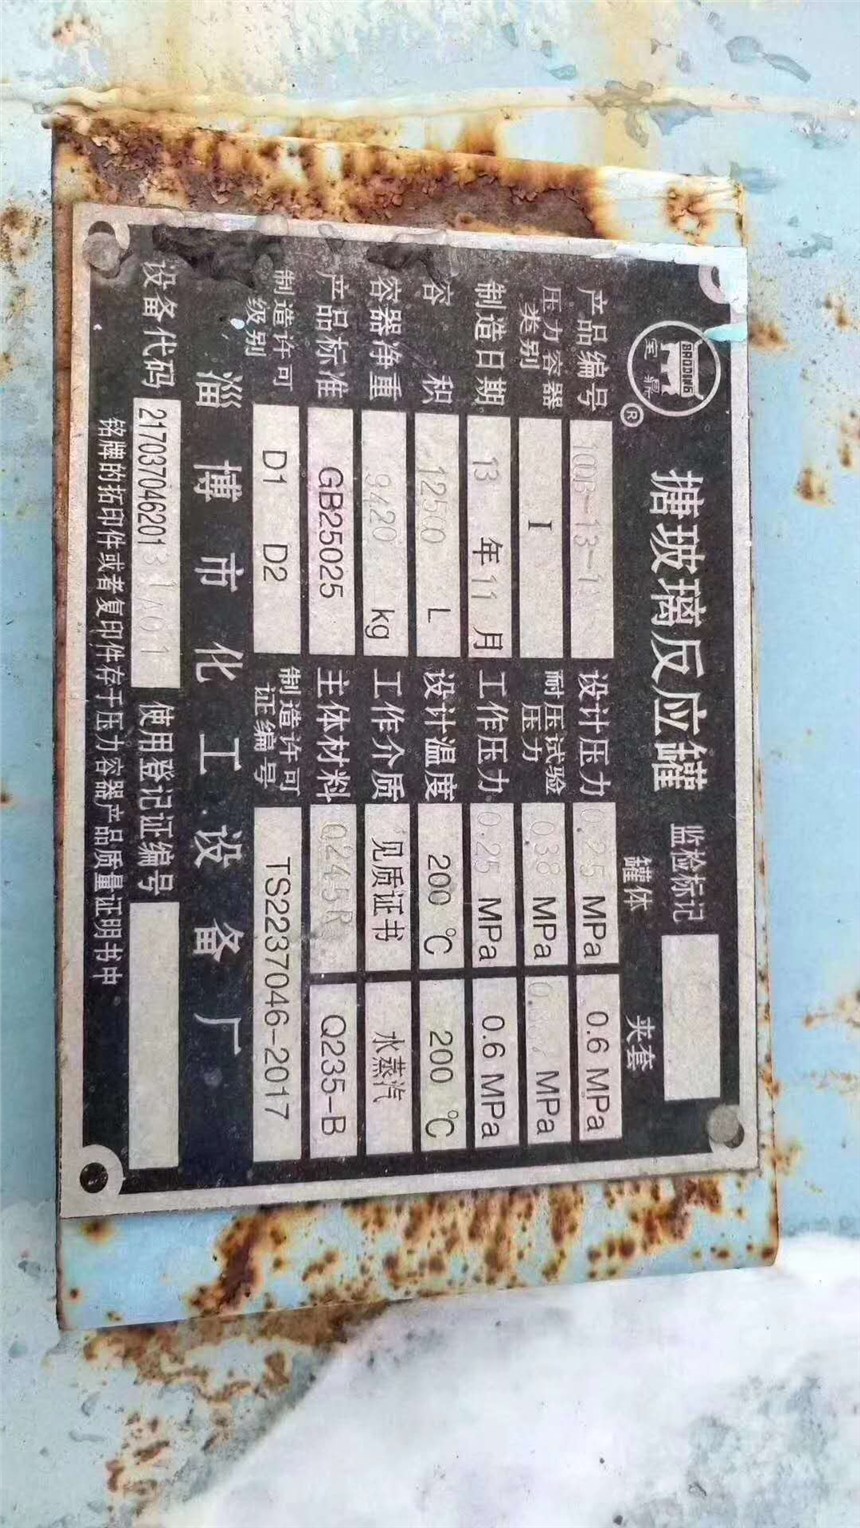 BAODING
宝鼎
®
搪玻璃反应罐
监检标记
罐体 夹套
产品编号 设计压力 0.25 MPa 0.6 MPa
压力容器类别 I 耐压试验压力 0.38 MPa MPa
制造日期 13 年 11 月 工作压力 0.25 MPa 0.6 MPa
容积 12500 L 设计温度 200 ℃ 200 ℃
容器净重 9420 kg 工作介质 见质证书 水蒸汽
产品标准 GB25025 主体材料 Q245R Q235-B
制造许可级别 D1 D2 制造许可证编号 TS2237046-2017
淄博市化工设备厂
设备代码 217037046201 使用登记证编号
铭牌的拓印件或者复印件存于压力容器产品质量证明书中。